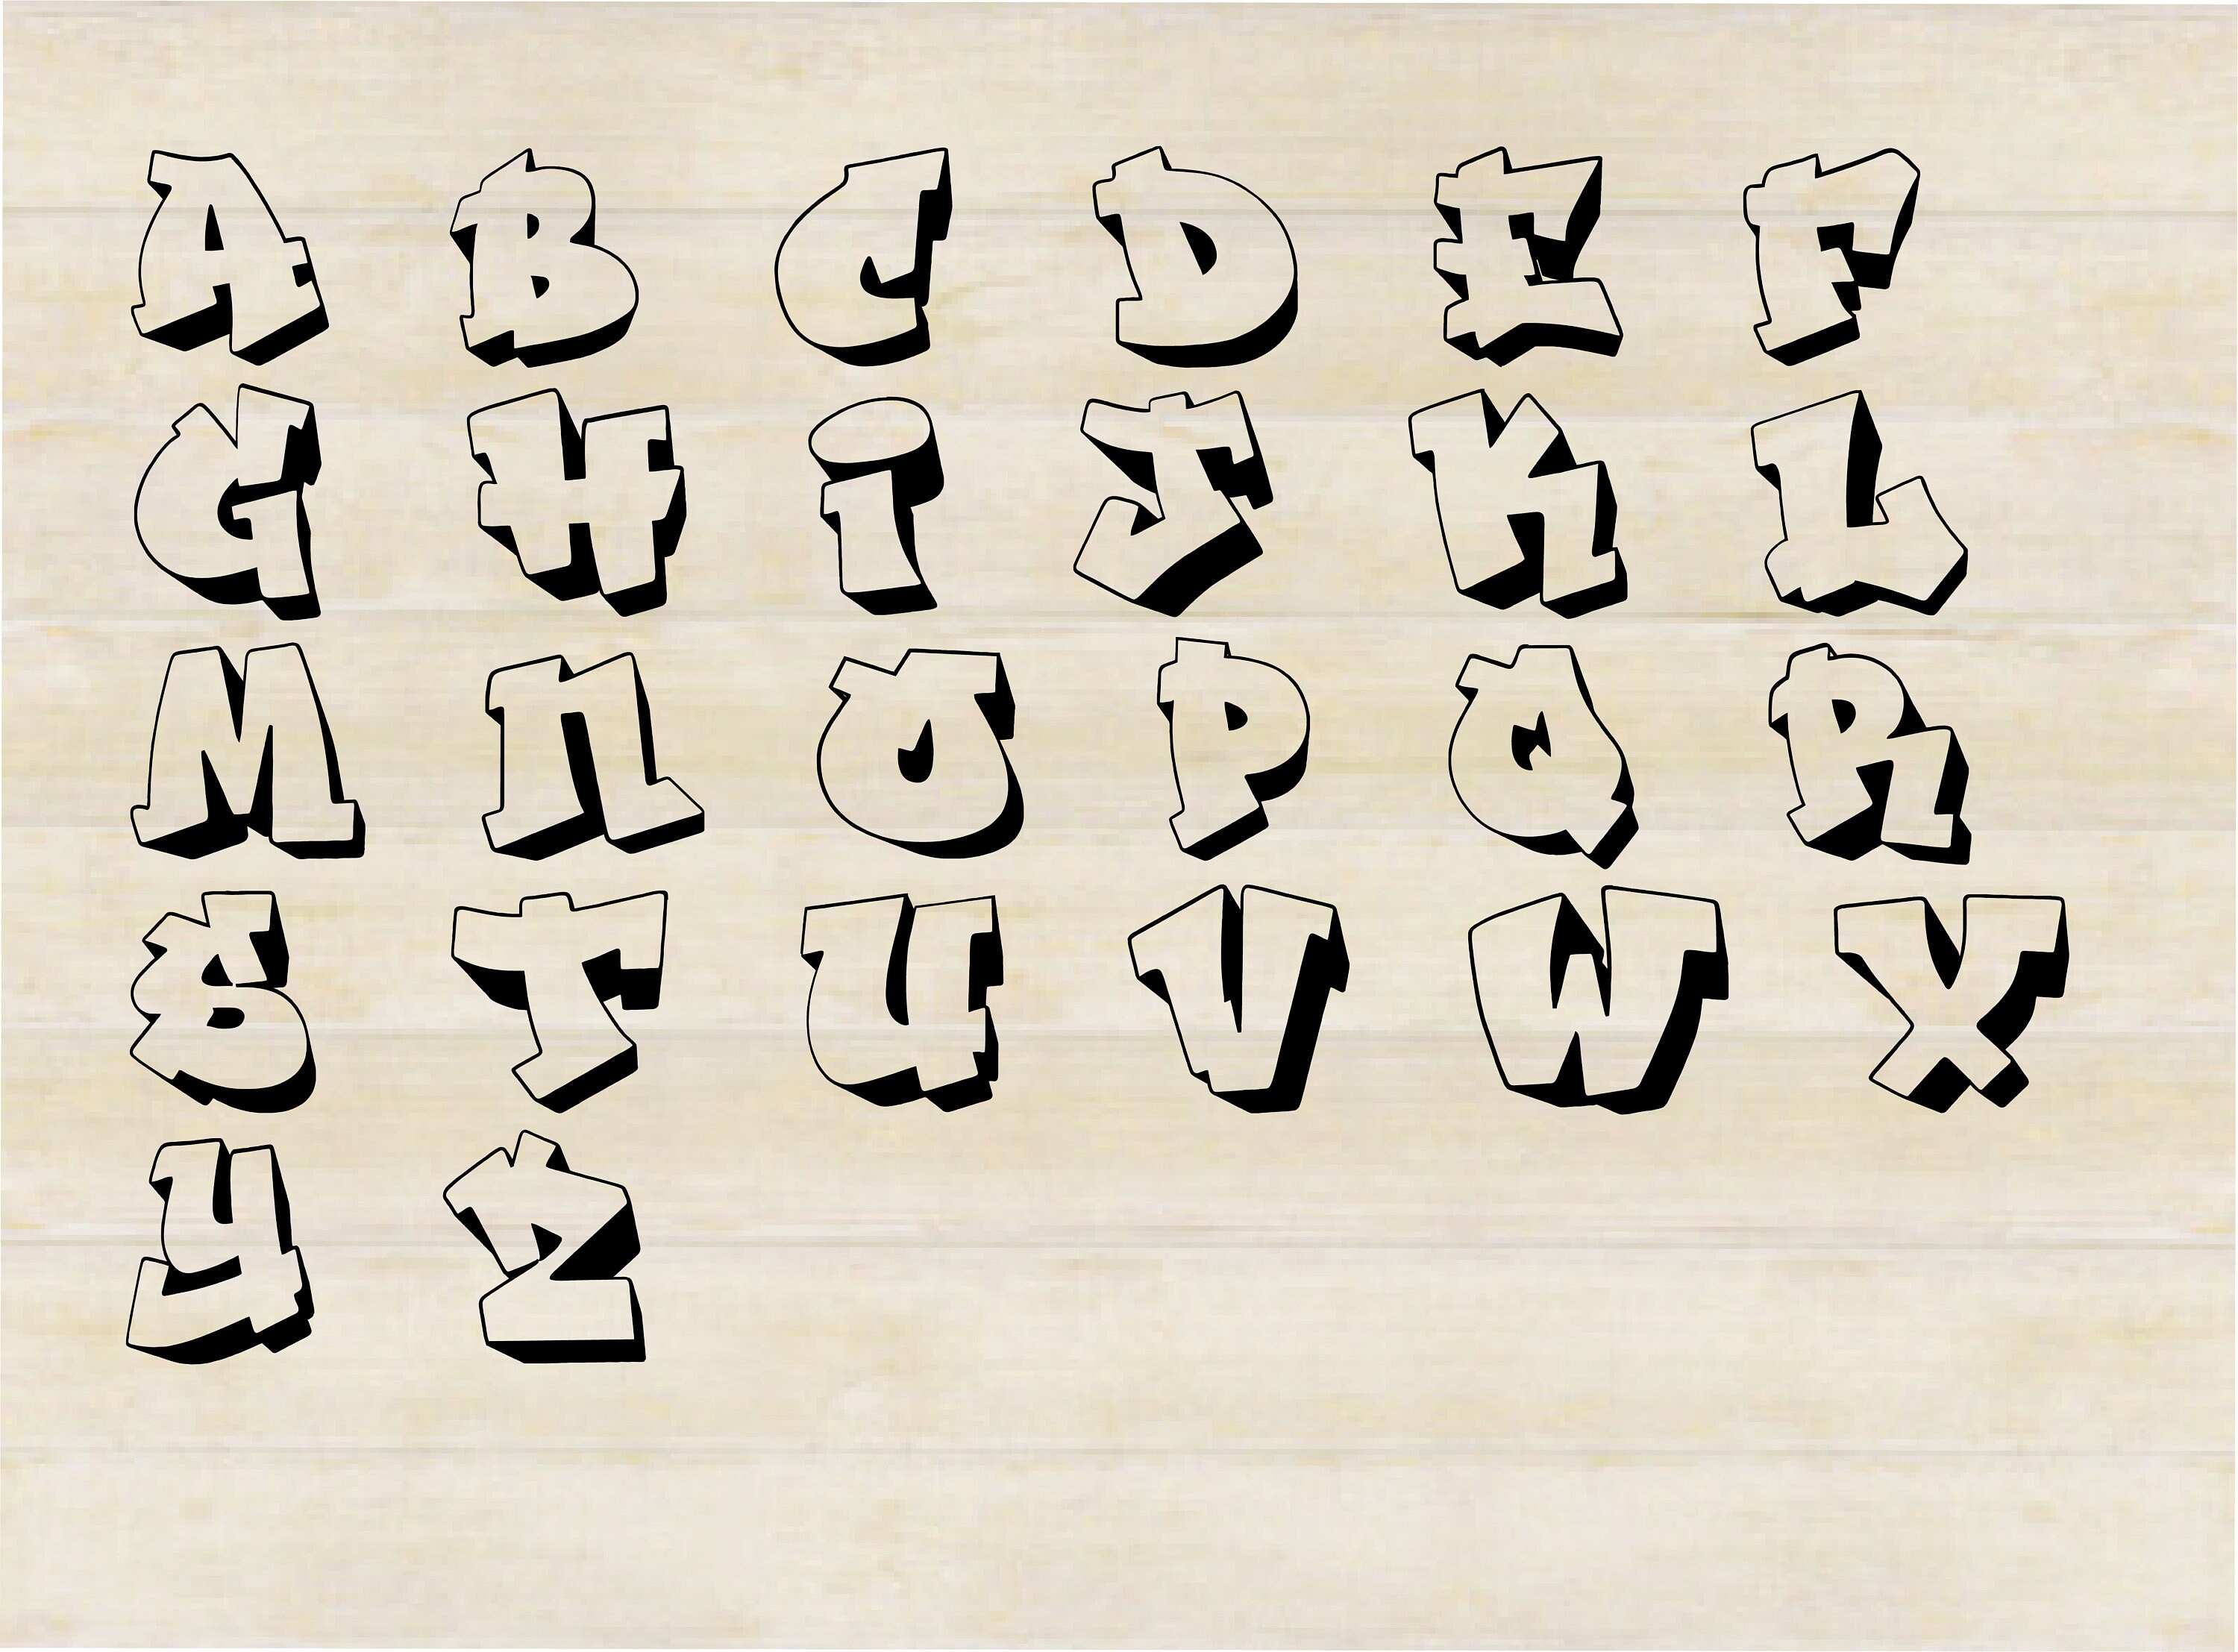 A B C D E F
G H i J K L
M n O P Q R
S T U V W X
Y Z